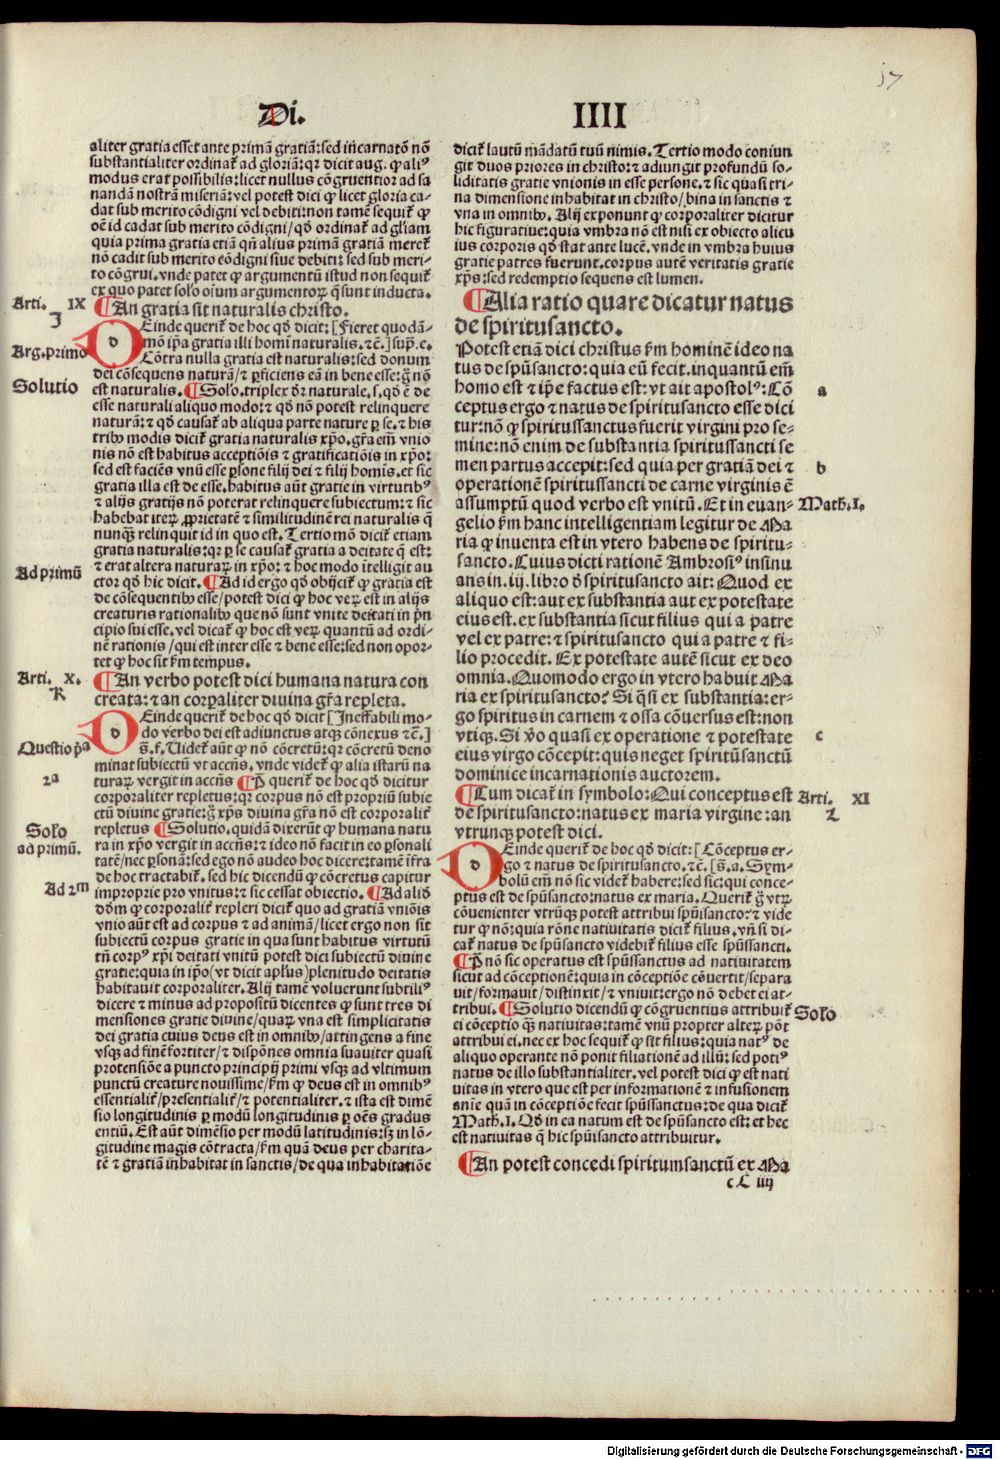 17
Di. IIII
aliter gratia esset ante primā gratiā: sed incarnatō nō
substantialiter ordinat̄ ad gloriā: qr dicit aug. ꝙ aliꝰ
modus erat possibilis: licet nullus cōgruentior ad sa
nandā nostrā miseriā: vel potest dici ꝙ licet gloria ca-
dat sub merito cōdigni vel debiti: non tamē sequit̄ ꝙ
oē id cadat sub merito cōdigni / qđ ordinat̄ ad gl̄iam
quia prima gratia etiā qn̄ aliꝰ primā gratiā meret̄
nō cadit sub merito cōdigni siue debiti: sed sub meri-
to cōgrui. vnde patet ꝙ argumentū istud non sequit̄
ex quo patet solo oīum argumentoꝝ q̄ sunt inducta.
Arti. IX
J
¶ An gratia sit naturalis christo.
Deinde querit̄ de hoc qđ dicit: [Fieret quodā-
mō ip̄a gratia illi homini naturalis. ⁊c.] sup̄. e.
Arg. primo
Cōtra nulla gratia est naturalis: sed donum
dei cōsequens naturā / ⁊ ꝑficiens eā in bene esse: g̊ nō
Solutio
est naturalis. ¶ Solo. triplex dr̄ naturale. s. qđ ē de
esse naturali aliquo modo: ⁊ qđ nō potest relinquere
naturā: ⁊ qđ causat̄ ab aliqua parte nature ꝑ se. ⁊ his
tribꝰ modis dicit̄ gratia naturalis xpō. gr̄a em̄ vnio
nis nō est habitus acceptiōis ⁊ gratificatiōis in xpō:
sed est faciēs vnū esse ꝑsone filij dei ⁊ filij homis. et sic
gratia illa est de esse. habitus aūt gratie in virtutibꝰ
⁊ alijs gratijs nō poterat relinquere subiectum: ⁊ sic
habebat iteꝝ ꝓprietatē ⁊ similitudinē rei naturalis q̄
nunqꝫ relinquit id in quo est. Tertio mō dicit̄ etiam
gratia naturalis: qr ꝑ se causat̄ gratia a deitate q̄ est:
⁊ erat altera naturaꝝ in xpō: ⁊ hoc modo ītelligit au
Ad primū
ctor qđ hic dicit. ¶ Ad id ergo qđ obijcit̄ ꝙ gratia est
de cōsequentibꝰ esse / potest dici ꝙ hoc veꝝ est in alijs
creaturis rationalibꝰ que nō sunt vnite deitati in prin
cipio sui esse. vel dicat̄ ꝙ hoc est veꝝ quantū ad ordi-
nē rationis / qui est inter esse ⁊ bene esse: sed non opor-
tet ꝙ hoc sit fm̄ tempus.
Arti. X.
K
¶ An verbo potest dici humana natura con
creata: ⁊ an corꝑaliter diuina gr̄a repleta.
Deinde querit̄ de hoc qđ dicit [Ineffabili mo-
do verbo dei est adiunctus atqꝫ cōnexus ⁊c.]
Questio pᵃ
s̄. f. Videt̄ aūt ꝙ nō cōcretū: qr cōcretū deno
minat subiectū vt accn̄s. vnde videt̄ ꝙ alia istarū na
2ᵃ
turaꝝ vergit in accn̄s ¶ P̄ querit̄ de hoc qđ dicitur
corporaliter repletus: qr corpus nō est propriū subie
ctū diuine gratie: g̊ xp̄s diuina gr̄a nō est corporalit̄
Solo
repletus ¶ Solutio. quidā dixerūt ꝙ humana natu
ad primū.
ra in xpō vergit in accn̄s: ⁊ ideo nō facit in eo ꝑsonali
tatē / nec ꝑsonā: sed ego nō audeo hoc dicere: tamē īfra
de hoc tractabit̄. sed hic dicendū ꝙ cōcretus capitur
Ad 2m
improprie pro vnitus: ⁊ sic cessat obiectio. ¶ Ad aliđ
đđm ꝙ corporalit̄ repleri dicit̄ quo ad gratiā vniōis
vnio aūt est ad corpus ⁊ ad animā / licet ergo non sit
subiectū corpus gratie in qua sunt habitus virtutū
tn̄ corpꝰ xp̄i deitati vnitū potest dici subiectū diuine
gratie: quia in ip̄o (vt dicit apl̄us) plenitudo deitatis
habitauit corporaliter. Alij tamē voluerunt subtiliꝰ
dicere ⁊ minus ad propositū dicentes ꝙ sunt tres di
mensiones gratie diuine / quaꝝ vna est simplicitatis
dei gratia cuius deus est in omnibꝰ / attingens a fine
vsqꝫ ad finē fortiter / ⁊ dispōnes omnia suauiter quasi
protensiōe a puncto principij primi vsqꝫ ad vltimum
punctū creature nouissime / fm̄ ꝙ deus est in omnibꝰ
essentialit̄ / presentialit̄ / ⁊ potentialiter. ⁊ ista est dimē
sio longitudinis ꝑ modū longitudinis ꝑ oēs gradus
entiū. Est aūt dimēsio per modū latitudinis: sꝫ in lō-
gitudine magis cōtracta / fm̄ quā deus per charita-
tē ⁊ gratiā inhabitat in sanctis / de qua inhabitatiōe
dicit̄ latū mādatū tuū nimis. Tertio modo coniun
git duos priores in christo: ⁊ adiungit profundū so-
liditatis gratie vnionis in esse persone. ⁊ sic quasi tri-
na dimensione inhabitat in christo / bina in sanctis ⁊
vna in omnibꝰ. Alij exponunt ꝙ corporaliter dicitur
hic figuratiue: quia vmbra nō est nisi ex obiecto alicu
ius corporis qđ stat ante lucē. vnde in vmbra huius
gratie patres fuerunt. corpus autē veritatis gratie
xp̄s: sed redemptio sequens est lumen.
¶ Alia ratio quare dicatur natus
de spiritusancto.
Potest etiā dici christus fm̄ hominē ideo na
tus de spūsancto: quia eū fecit. in quantū em̄
homo est ⁊ ip̄e factus est: vt ait apostolꝰ: Cō
a
ceptus ergo ⁊ natus de spiritusancto esse dici
tur: nō ꝙ spiritussanctus fuerit virgini pro se-
mine: nō enim de substantia spiritussancti se
men partus accepit: sed quia per gratiā dei ⁊
b
operationē spiritussancti de carne virginis ē
assumptū quod verbo est vnitū. Et in euan-
Math. I.
gelio fm̄ hanc intelligentiam legitur de Ma
ria ꝙ inuenta est in vtero habens de spiritu-
sancto. Cuius dicti rationē Ambrosiꝰ insinu
ans in. ij. libro đ spiritusancto ait: Quod ex
aliquo est: aut ex substantia aut ex potestate
eius est. ex substantia sicut filius qui a patre
vel ex patre: ⁊ spiritusancto qui a patre ⁊ fi-
lio procedit. Ex potestate autē sicut ex deo
omnia. Quomodo ergo in vtero habuit Ma
ria ex spiritusancto? Si q̄si ex substantia: er-
go spiritus in carnem ⁊ ossa cōuersus est: non
vtiqꝫ. Si v̊o quasi ex operatione ⁊ potestate
c
eius virgo cōcepit: quis neget spiritūsanctū
dominice incarnationis auctorem.
¶ Cum dicat̄ in symbolo: Qui conceptus est
Arti. XI
L
de spiritusancto: natus ex maria virgine: an
vtrunqꝫ potest dici.
Deinde querit̄ de hoc qđ dicit: [Cōceptus er-
go ⁊ natus de spiritusancto. ⁊c. [s̄. a. Sym-
bolū em̄ nō sic videt̄ habere: sed sic: qui conce-
ptus est de spūsancto: natus ex maria. Querit̄ g̊ vtꝝ
cōuenienter vtrūqꝫ potest attribui spūisancto: ⁊ vide
tur ꝙ nō: quia rōne natiuitatis dicit̄ filius. vn̄ si di-
cat̄ natus de spūsancto videbit̄ filius esse spūssancti.
¶ P̄ nō sic operatus est spūssanctus ad natiuitatem
sicut ad cōceptionē: quia in cōceptiōe cōuertit / separa
uit / formauit / distinxit / ⁊ vniuit: ergo nō debet ei at-
tribui. ¶ Solutio dicendū ꝙ cōgruentius attribuit̄
Solo
ei cōceptio qꝫ natiuitas: tamē vnū propter alteꝝ pōt
attribui ei. nec ex hoc sequit̄ ꝙ sit filius: quia natꝰ de
aliquo operante nō ponit filiationē ad illū: sed potiꝰ
natus de illo substantialiter. vel potest dici ꝙ est nati
uitas in vtero que est per informationē ⁊ infusionem
anīe quā in cōceptiōe fecit spūssanctus: de qua dicit̄
Math. I. Qđ in ea natum est de spūsancto est: et hec
est natiuitas q̄ hic spūisancto attribuitur.
¶ An potest concedi spiritumsanctū ex Ma
cC iiij
Digitalisierung gefördert durch die Deutsche Forschungsgemeinschaft - DFG